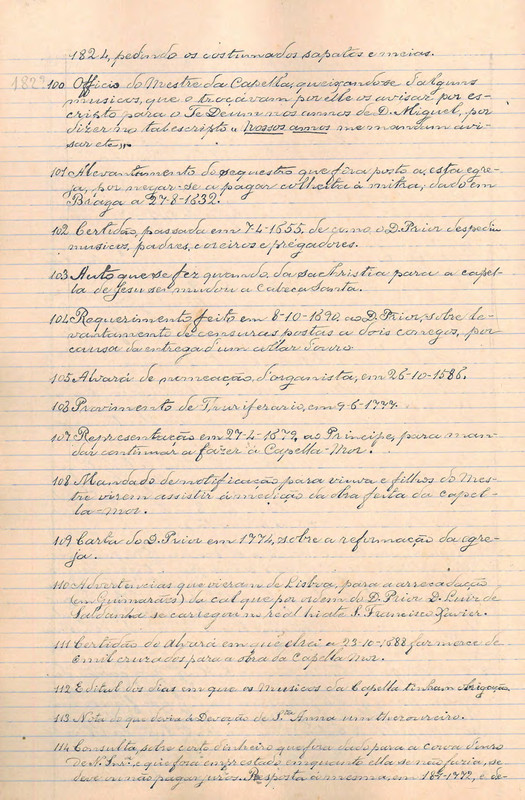 1824, pedindo os costumados sapatos e meias.
182
100 Officio do Mestre da Capella, queixando-se d'alguns
musicos, que o troçavam por elle os avisar por es-
cripto para o Te Deum nos annos de D. Miguel, por
dizer no tal escripto « Vossos amos me mandam avi-
sar etc »
101 Alevantamento do sequestro que fôra posto a esta egre-
ja, por negar-se a pagar colheita á mitra; dado em
Braga a 27-8-1632.
102 Certidão, passada em 7-4-1655, de como o D. Prior despediu
musicos, padres, coreiros e prégadores.
103 Auto que se fez quando da sachristia para a capel-
la de Jesus se mudou a Cabeça Santa.
104 Requerimento feito em 8-10-1690 ao D. Prior, sobre le-
vantamento de censuras postas a dois conegos, por
causa da entrega d'um collar d'ouro
105 Alvará de nomeação d'organista, em 26-10-1586.
106 Provimento de Thuriferario, em 9-6-1777.
107 Representação em 27-4-1679, ao Principe, para man-
dar continuar a fazer a Capella-Mor.
108 Mandado de notificação para viuva e filhos do Mes-
tre virem assistir á medição da obra feita da capel-
la-mor.
109 Carta do D. Prior em 1774, sobre a reformação da egre-
ja.
110 Advertencias que vieram de Lisboa, para a arrecadação
(em Guimarães) da cal que por ordem do D. Prior D. Luiz de
Saldanha se carregou no real hiate S. Francisco Xavier.
111 Certidão do alvará em que el-rei a 23-10-1688 fez merce de
6 mil cruzados para a obra da Capella Mor.
112 Edital dos dias em que os Musicos da Capella tinham obrigação
113 Nota do que devia á Devoção de S.ta Anna um thesoureiro.
114 Consulta, sobre certo dinheiro que fôra dado para a coroa d'ouro
de N. Snr.ª e que fôra emprestado emquanto ella se não fazia, se
deve ou não pagar juros. Resposta á mesma, em 1772, e de-